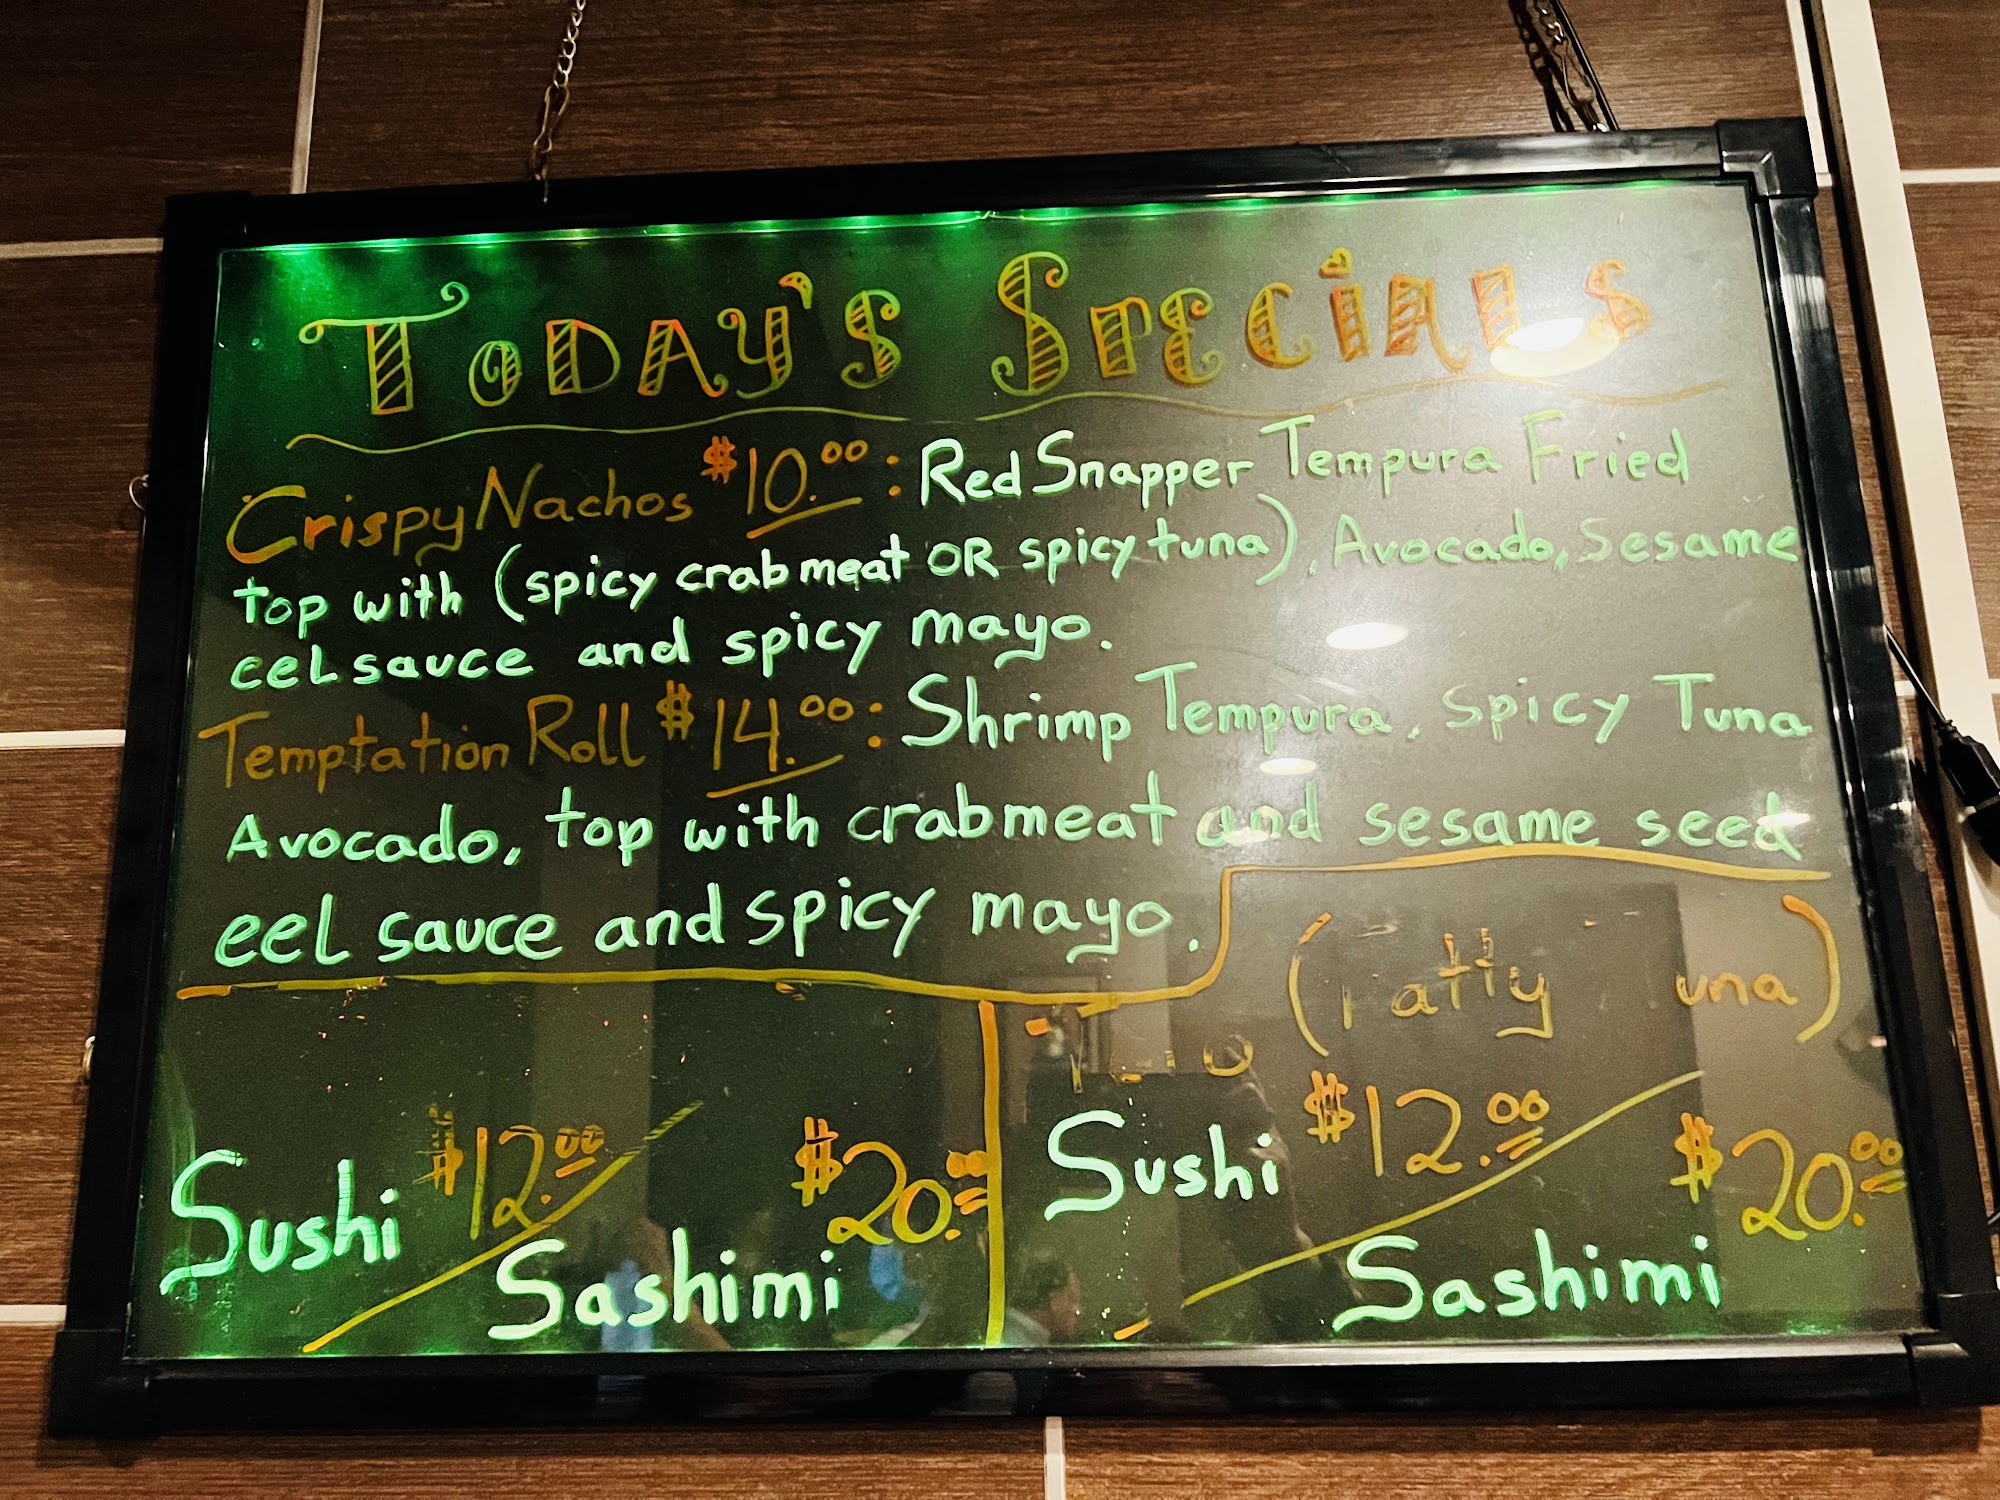 Today's Specials
Crispy Nachos $10.00: Red Snapper Tempura Fried
top with (spicy crabmeat OR spicy tuna), Avocado, Sesame
eel sauce and spicy mayo.
Temptation Roll $14.00: Shrimp Tempura, Spicy Tuna
Avocado, top with crabmeat and sesame seed
eel sauce and spicy mayo.
Sushi $12.00
Sashimi $20.00
Sushi $12.00
Sashimi $20.00